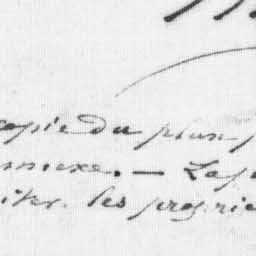 copie du plan
annexe. — Lap
iter les proprié